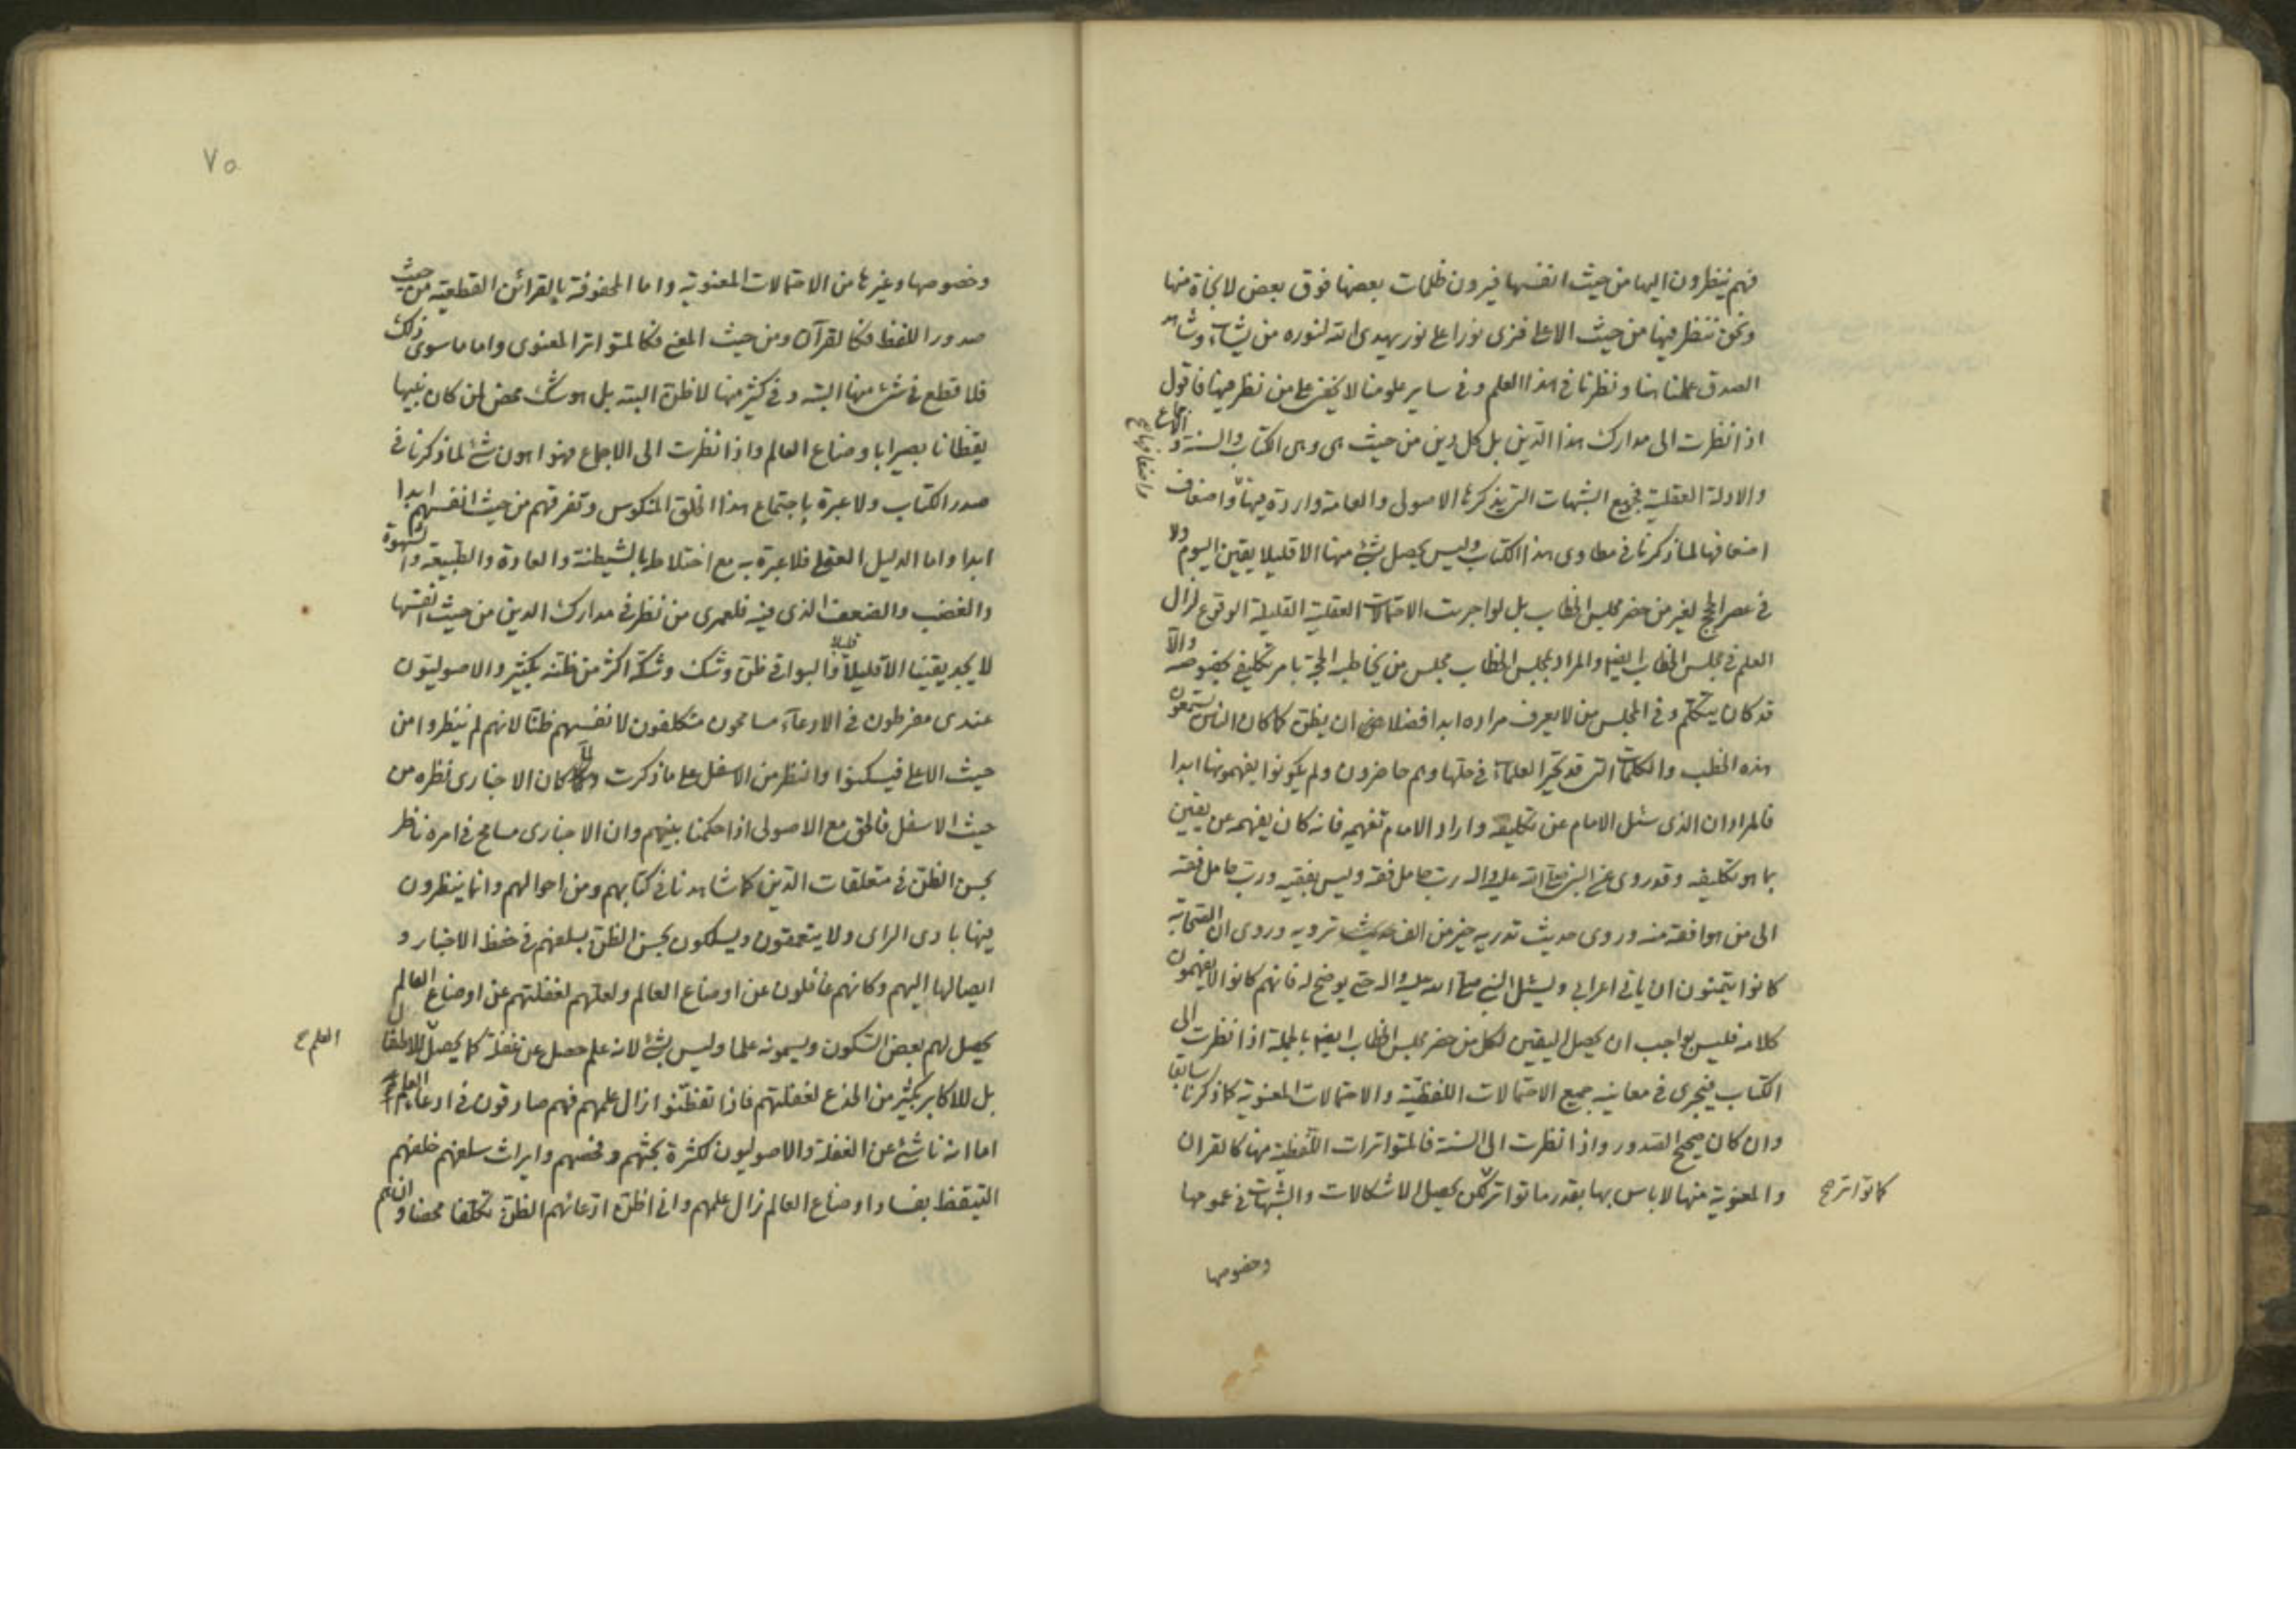 فهم ينظرون اليها من حيث انفسها فيرون ظلمات بعضها فوق بعض لا نجاة منها
ونحن ننظر فيها من حيث الاعلى فنرى نورا على نور يهدى الله لنوره من يشاء وشاهد
الصدق علمنا هنا ونظرنا في هذا العلم وفي ساير علومنا لا يخفى على من نظر فيها فاقول
اذا نظرت الى مدارك هذا الدين بل كل دين من حيث هى وهى الكتاب والسنة والاجماع
والادلة العقلية فجميع الشبهات التى يذكرها الاصولى والعامة واردة فيها واضعاف
واضعافها ع
اضعافها لما ذكرنا في مطاوى هذا الكتاب وليس يحصل بشئ منها الا قليلا يقين اليوم ولا
في عصر الحجج لغير من حضر مجلس الخطاب بل لو اجريت الاحتمالات العقلية القليلة الوقوع لزال
العلم في مجلس الخطاب ايضا والمراد بمجلس الخطاب مجلس من يخاطبه الحجة بامر تكليفى بخصوصه والا
قد كان يتكلم وفي المجلس من لا يعرف مراده ابدا فضلا من ان يظن كما كان الناس يستمعون
هذه الخطب والكلمات التى قد تحير العلماء في حلها وهم حاضرون ولم يكونوا يفهمونها ابدا
فالمراد ان الذى سئل الامام عن تكليفه واراد الامام تفهيمه فانه كان يفهمه عن يقين
بما هو تكليفه وقد روى عن النبي صلى الله عليه واله رب حامل فقه وليس بفقيه ورب حامل فقه
الى من هو افقه منه وروى حديث تدريه خير من الف حديث ترويه وروى ان الصحابة
كانوا يتمنون ان ياتى اعرابى ويسئل النبي صلى الله عليه واله حتى يوضح له فانهم كانوا لا يفهمون
كلامه فليس بواجب ان يحصل اليقين لكل من حضر مجلس الخطاب ايضا بالجملة اذا نظرت الى
الكتاب فيجرى في معانيه جميع الاحتمالات اللفظية والاحتمالات المعنوية كما ذكرنا سابقا
وان كان صحيح الصدور واذا نظرت الى السنة فالمتواترات اللفظية منها كالقران
والمعنوية منها لا باس بها بقدر ما تواتر لكن يحصل الاشكالات والشبهات في عمومها
كما تواتر صح
وخصوصها
٧٥
وخصوصها وغيرها من الاحتمالات المعنوية واما المحفوفة بالقرائن القطعية من حيث
صدور اللفظ فكالقرآن ومن حيث المعنى فكالمتواتر المعنوى واما ما سوى ذلك
فلا قطع في شئ منها البتة وفي كثير منها لا ظن البتة بل هو شك محض لمن كان نبيها
يقظانا بصيرا باوضاع العالم واذا نظرت الى الاجماع فهو اهون شئ لما ذكرنا في
صدر الكتاب ولا عبرة باجتماع هذا الخلق المنكوس وتفرقهم من حيث انفسهم ابدا
ابدا واما الدليل العقلى فلا عبرة به مع اختلاطه بالشيطنة والعادة والطبيعة والشهوة
والغضب والضعف الذى فيه فلعمرى من نظر في مدارك الدين من حيث انفسها
لا يجد يقينا الا قليلا قليلا والبواقى ظن وشك وشكه اكثر من ظنه بكثير والاصوليون
عندى مفرطون في الادعاء مسامحون متكلفون لانفسهم ظنا لانهم لم ينظروا من
حيث الاعلى فيسكنوا والنظر من الاسفل على ما ذكرت كان الاخبارى نظره من
حيث الاسفل فالحق مع الاصولى اذا حكمنا بينهم وان الاخبارى مسامح في امره ناظر
بحسن الظن في متعلقات الدين كما شاهدنا في كتابهم ومن احوالهم وانما ينظرون
فيها بادى الراى ولا يتعمقون ويسلكون بحسن الظن بسلفهم في حفظ الاخبار و
ايصالها اليهم وكانهم غافلون عن اوضاع العالم ولعلهم لغفلتهم عن اوضاع العالم
يحصل لهم بعض السكون ويسمونه علما وليس بشئ لانه علم حصل عن غفلة كما يحصل للاطفال
العلم ع
بل للاكابر بكثير من الخدع لغفلتهم فاذا تفطنوا زال علمهم فهم صادقون في ادعاء العلم
اما انه ناشئ عن الغفلة والاصوليون لكثرة بحثهم وفحصهم وايراث سلفهم خلفهم
التيقظ بفساد اوضاع العالم زال علمهم وانى اظن ادعائهم الظن تكلفا محضا وانهم